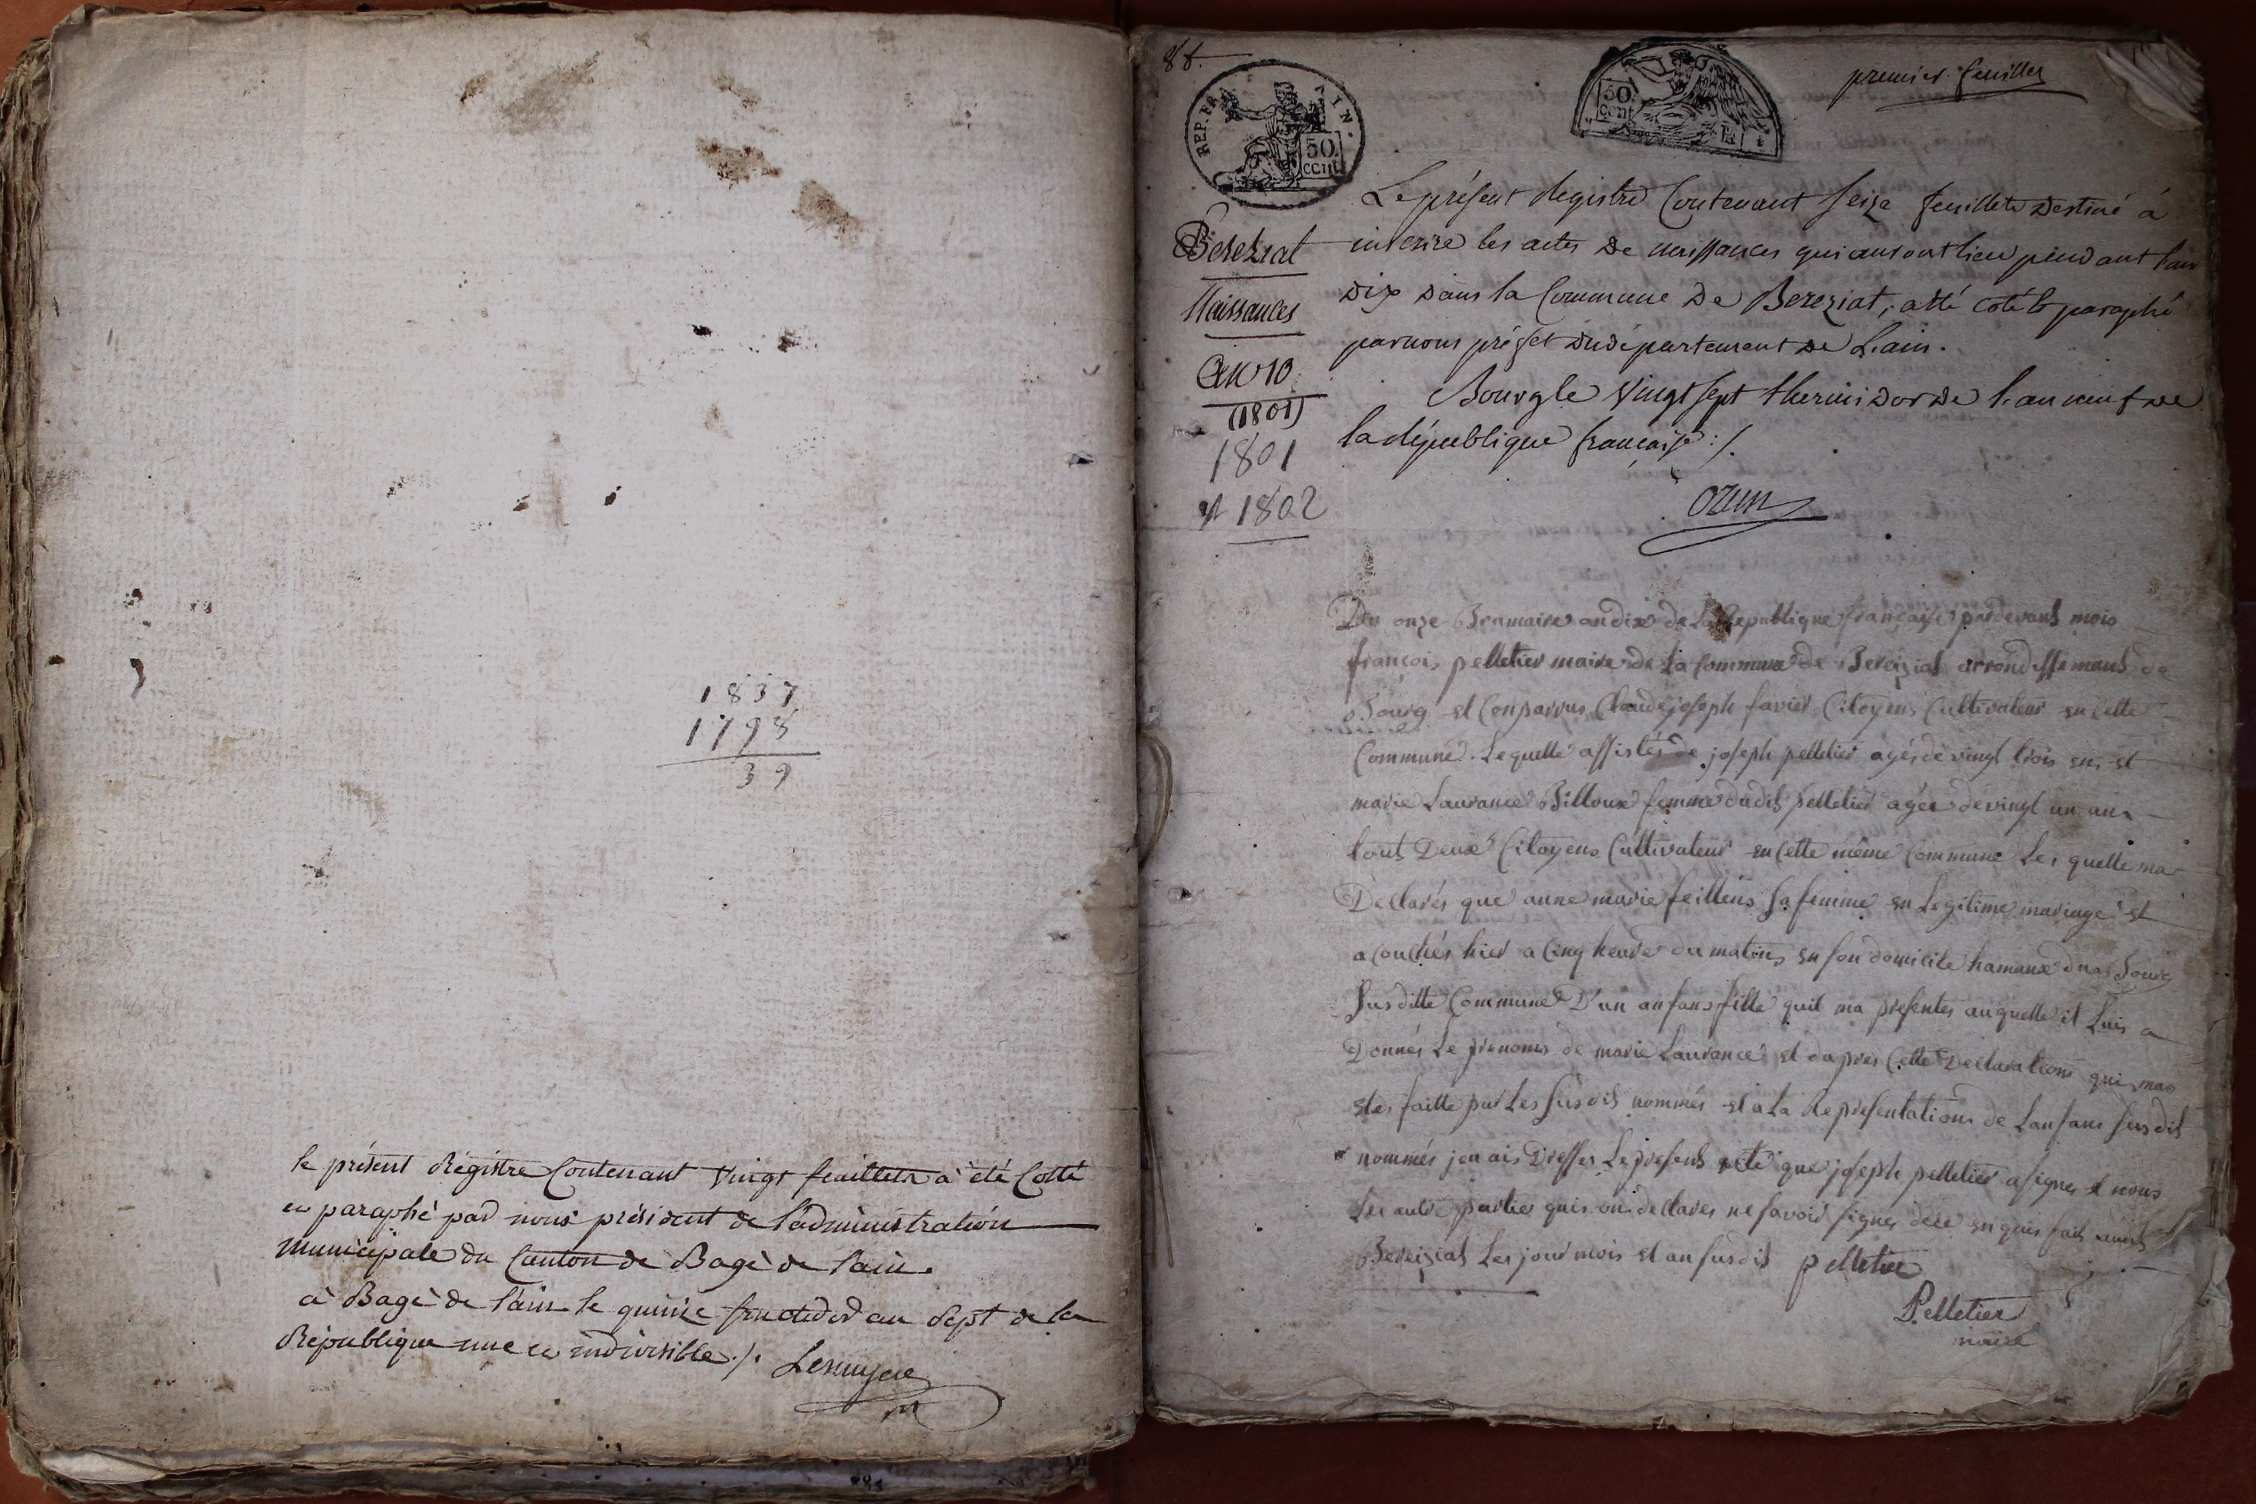 1837
1798
39
le présent Régistre Contenant Vingt feuillets à été Cotté
et paraphé par nous président de l'administration
municipale du Canton de Bagé de l'ain.
à Bagé de l'ain le quinze fructidor an Sept de la
République une et indivisible ./.
REP. FRA
AIN.
50
cent
50
cent
premier feuillet
Bereziat
Naissances
An 10
(1801)
1801
et 1802
Le présent Registre Contenant seize feuillets Destiné à
inscrire les actes de naissances qui auront lieu pendant l'an
dix dans la Commune De Bereziat, a été coté et paraphé
par nous préfet du département de L'ain.
Bourg le Vingt sept thermidor de l'an neuf de
la République française ./.
Ozun
Du onze Brumaire an dix de La Republique française pardevant mois
françois pelletier maire de La Commune de Bereiziat arrondissement de
Bourg est Conparrus Claude joseph favier Citoyens Cultivateur en Cette
Commune. Lequelle assistés de joseph pelletier agés de vingt trois ens et
marie Laurance Billoux femme dudit pelletier agée de vingt un ans
tout Deux Citoyens Cultivateur en Cette même Commune Les quelle ma
Declarés que anne marie feillens sa femme en Legitime mariage est
acouchés hier a Cinq heure du matins en son domicile hamaux du Bourg
Susditte Commune D'un anfans fille quil ma presentes auquelle il Luis a
Donnés Le prenoms de marie Laurance et dapres Cette Declarations qui mas
etes faitte par Les susdit nommés et a La Representations de Lanfans susdit
nommés jen ais Dresser Le present acte que joseph pelletier a signer et nous
Les autre parties quis on declarer ne savoir signer dece en quis fait
Bereiziat Les jour mois et an susdit pelletier
Pelletier
maire